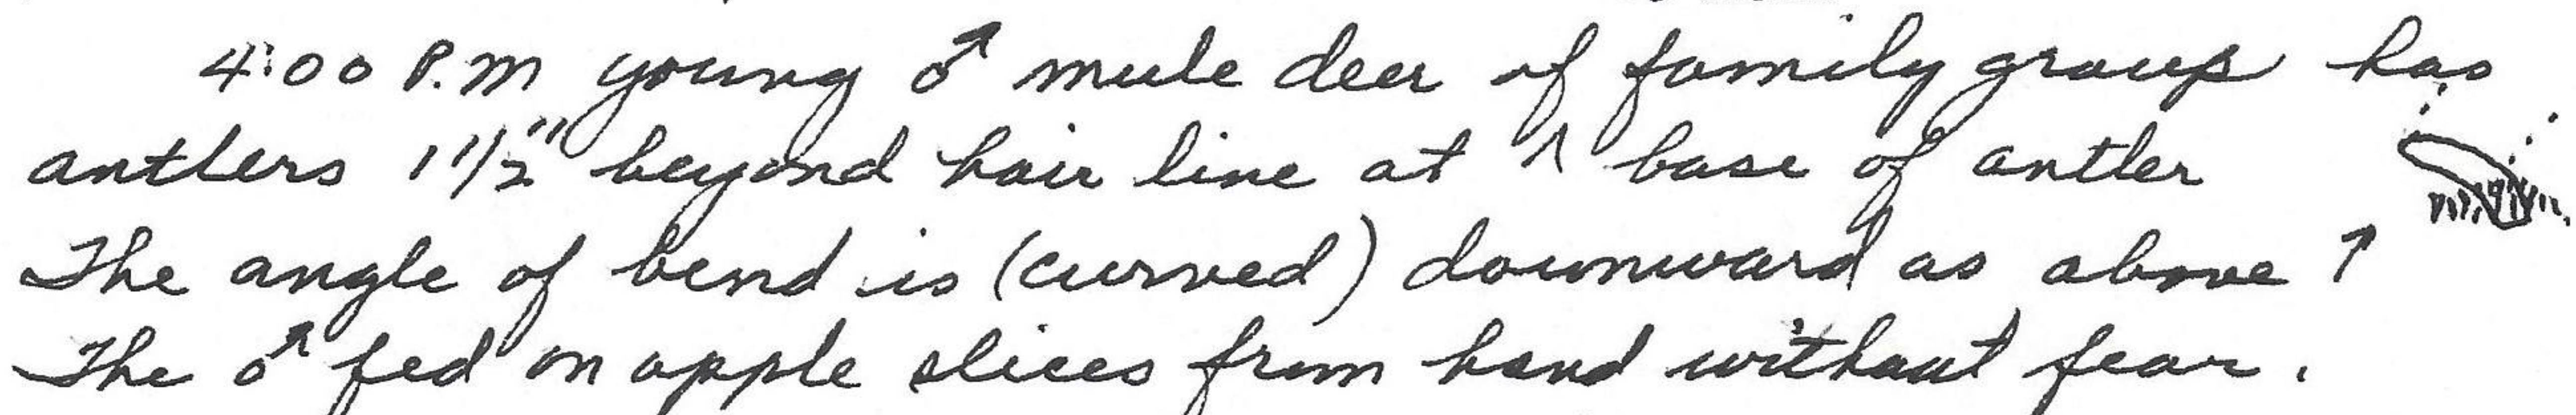 4:00 P.M young ♂ mule deer of family group has
antlers 1 1/2" beyond hair line at ^ base of antler
The angle of bend is (curved) downward as above ↑
The ♂ fed on apple slices from hand without fear.